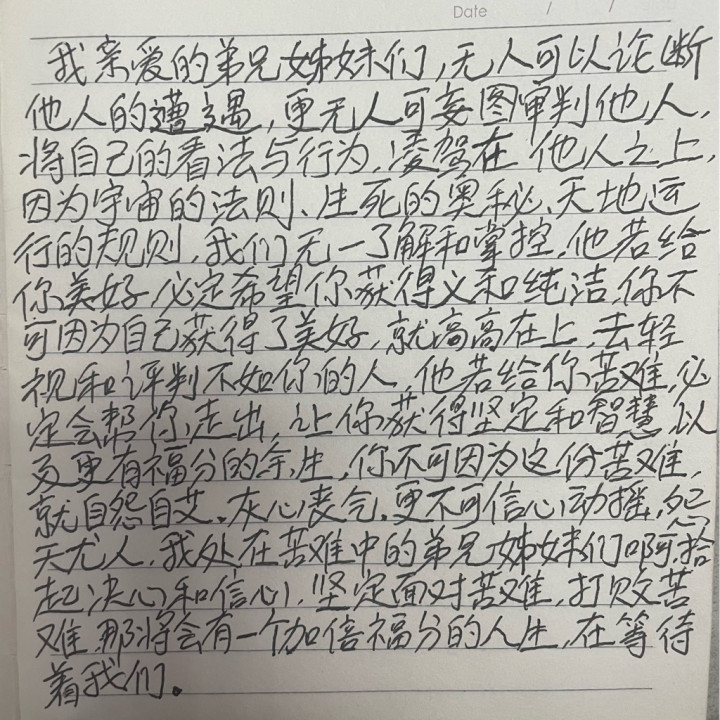 Date / /
我亲爱的弟兄姊妹们,无人可以论断
他人的遭遇,更无人可妄图审判他人,
将自己的看法与行为,凌驾在他人之上,
因为宇宙的法则、生死的奥秘、天地运
行的规则,我们无一了解和掌控,他若给
你美好,必定希望你获得义和纯洁,你不
可因为自己获得了美好,就高高在上,去轻
视和评判不如你的人,他若给你苦难,必
定会帮你走出,让你获得坚定和智慧,以
及更有福分的余生,你不可因为这份苦难,
就自怨自艾、灰心丧气,更不可信心动摇,怨
天尤人,我处在苦难中的弟兄姊妹们啊,拾
起决心和信心,坚定面对苦难,打败苦
难,那将会有一个加倍福分的人生,在等待
着我们。